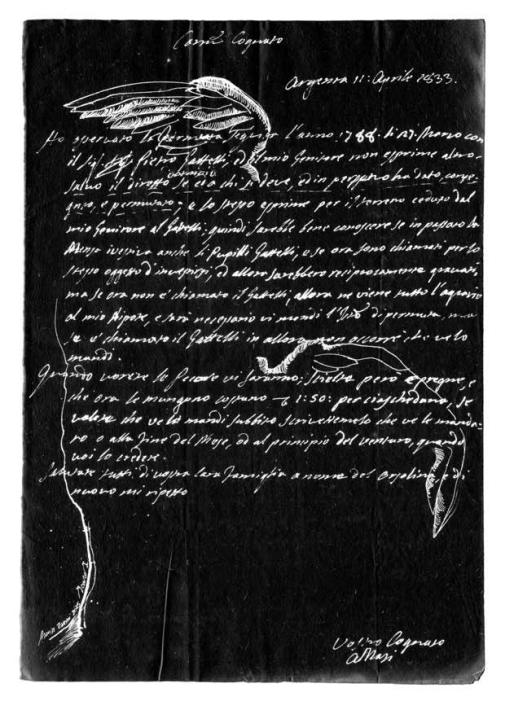 Car.mo Cognato
Argenta 11: Aprile 1833.
Ho osservato la permuta seguita l'anno 1788. li 27. Marzo con
il Sig. Pietro Gattelli, ed il mio Genitore non esprime altro
salvo il diretto dominio se e a chi si deve, ed in perpetuo ha dato, conce
, e permutato e lo stesso esprime per il terreno ceduto dal
mio Genitore al Gattelli: quindi sarebbe bene conoscere se in passato la
investiva anche li Pupilli Gattelli, e se ora sono chiamati per lo
stesso oggetto d'investirsi, ed allora sarebbero reciprocamente gravati,
ma se ora non è chiamato il Gattelli, allora ne viene tutto l'aggravio
al mio Nipote, e sarà necessario vi mandi l' di permuta, ma
se è chiamato il Gattelli in allora non occorre che ve lo
mandi.
Quando vorete le Pecore vi saranno: scielte però e pregne, e
che ora le mungano costano 1:50: per ciascheduna, se
volete che ve le mandi subbito scrivettemelo che ve le manda-
ro o alla fine del Mese, od al principio del venturo, quando
voi lo credete.
Salutate tutti di vostra cara famiglia a nome del, e di
nuovo mi ripetto
Vostro Cognato